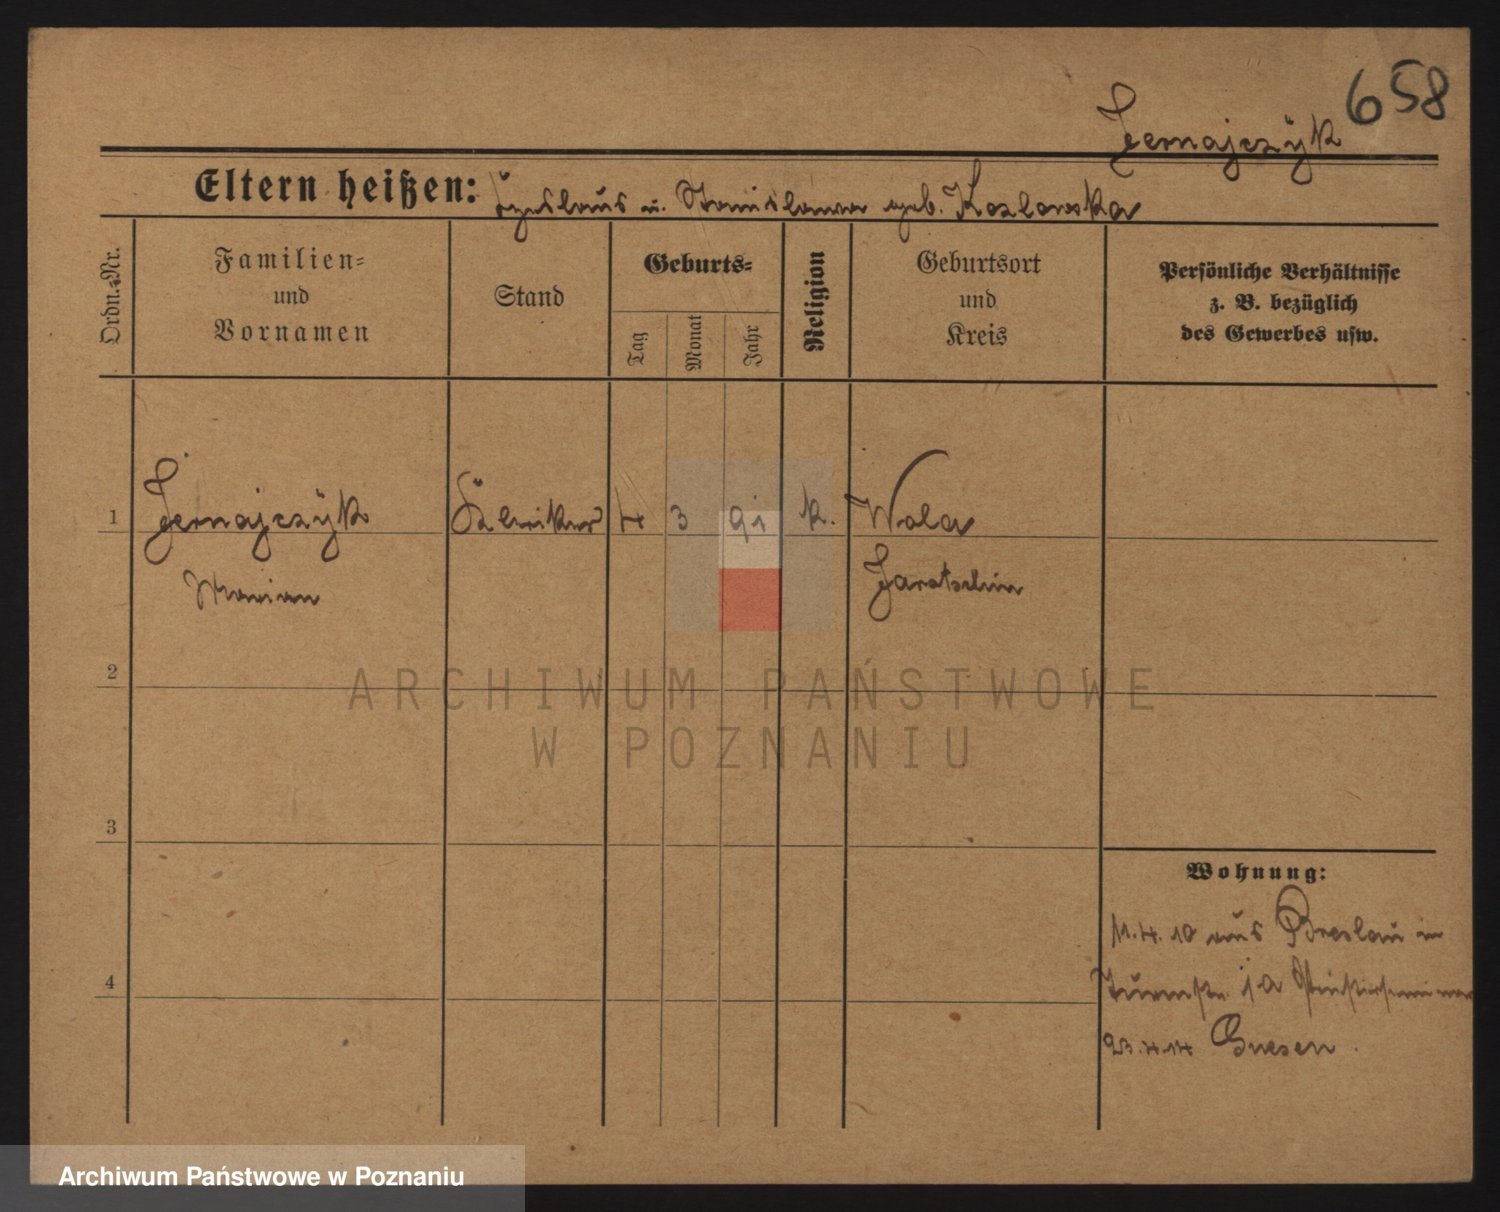 658
Jernajczÿk
Eltern heißen: u. Stanislawa geb. Kozlowska
Ordn.-Nr.
Familien-
und
Vornamen
Stand
Geburts-
Tag
Monat
Jahr
Religion
Geburtsort
und
Kreis
Persönliche Verhältnisse
z. B. bezüglich
des Gewerbes usw.
1 Jernajczÿk 4 3 91 k. Wola
Marian Jarotschin
2
ARCHIWUM PAŃSTWOWE
W POZNANIU
3
Wohnung:
11.4.10 aus Breslau in
4
23.4.14 Gnesen.
Archiwum Państwowe w Poznaniu